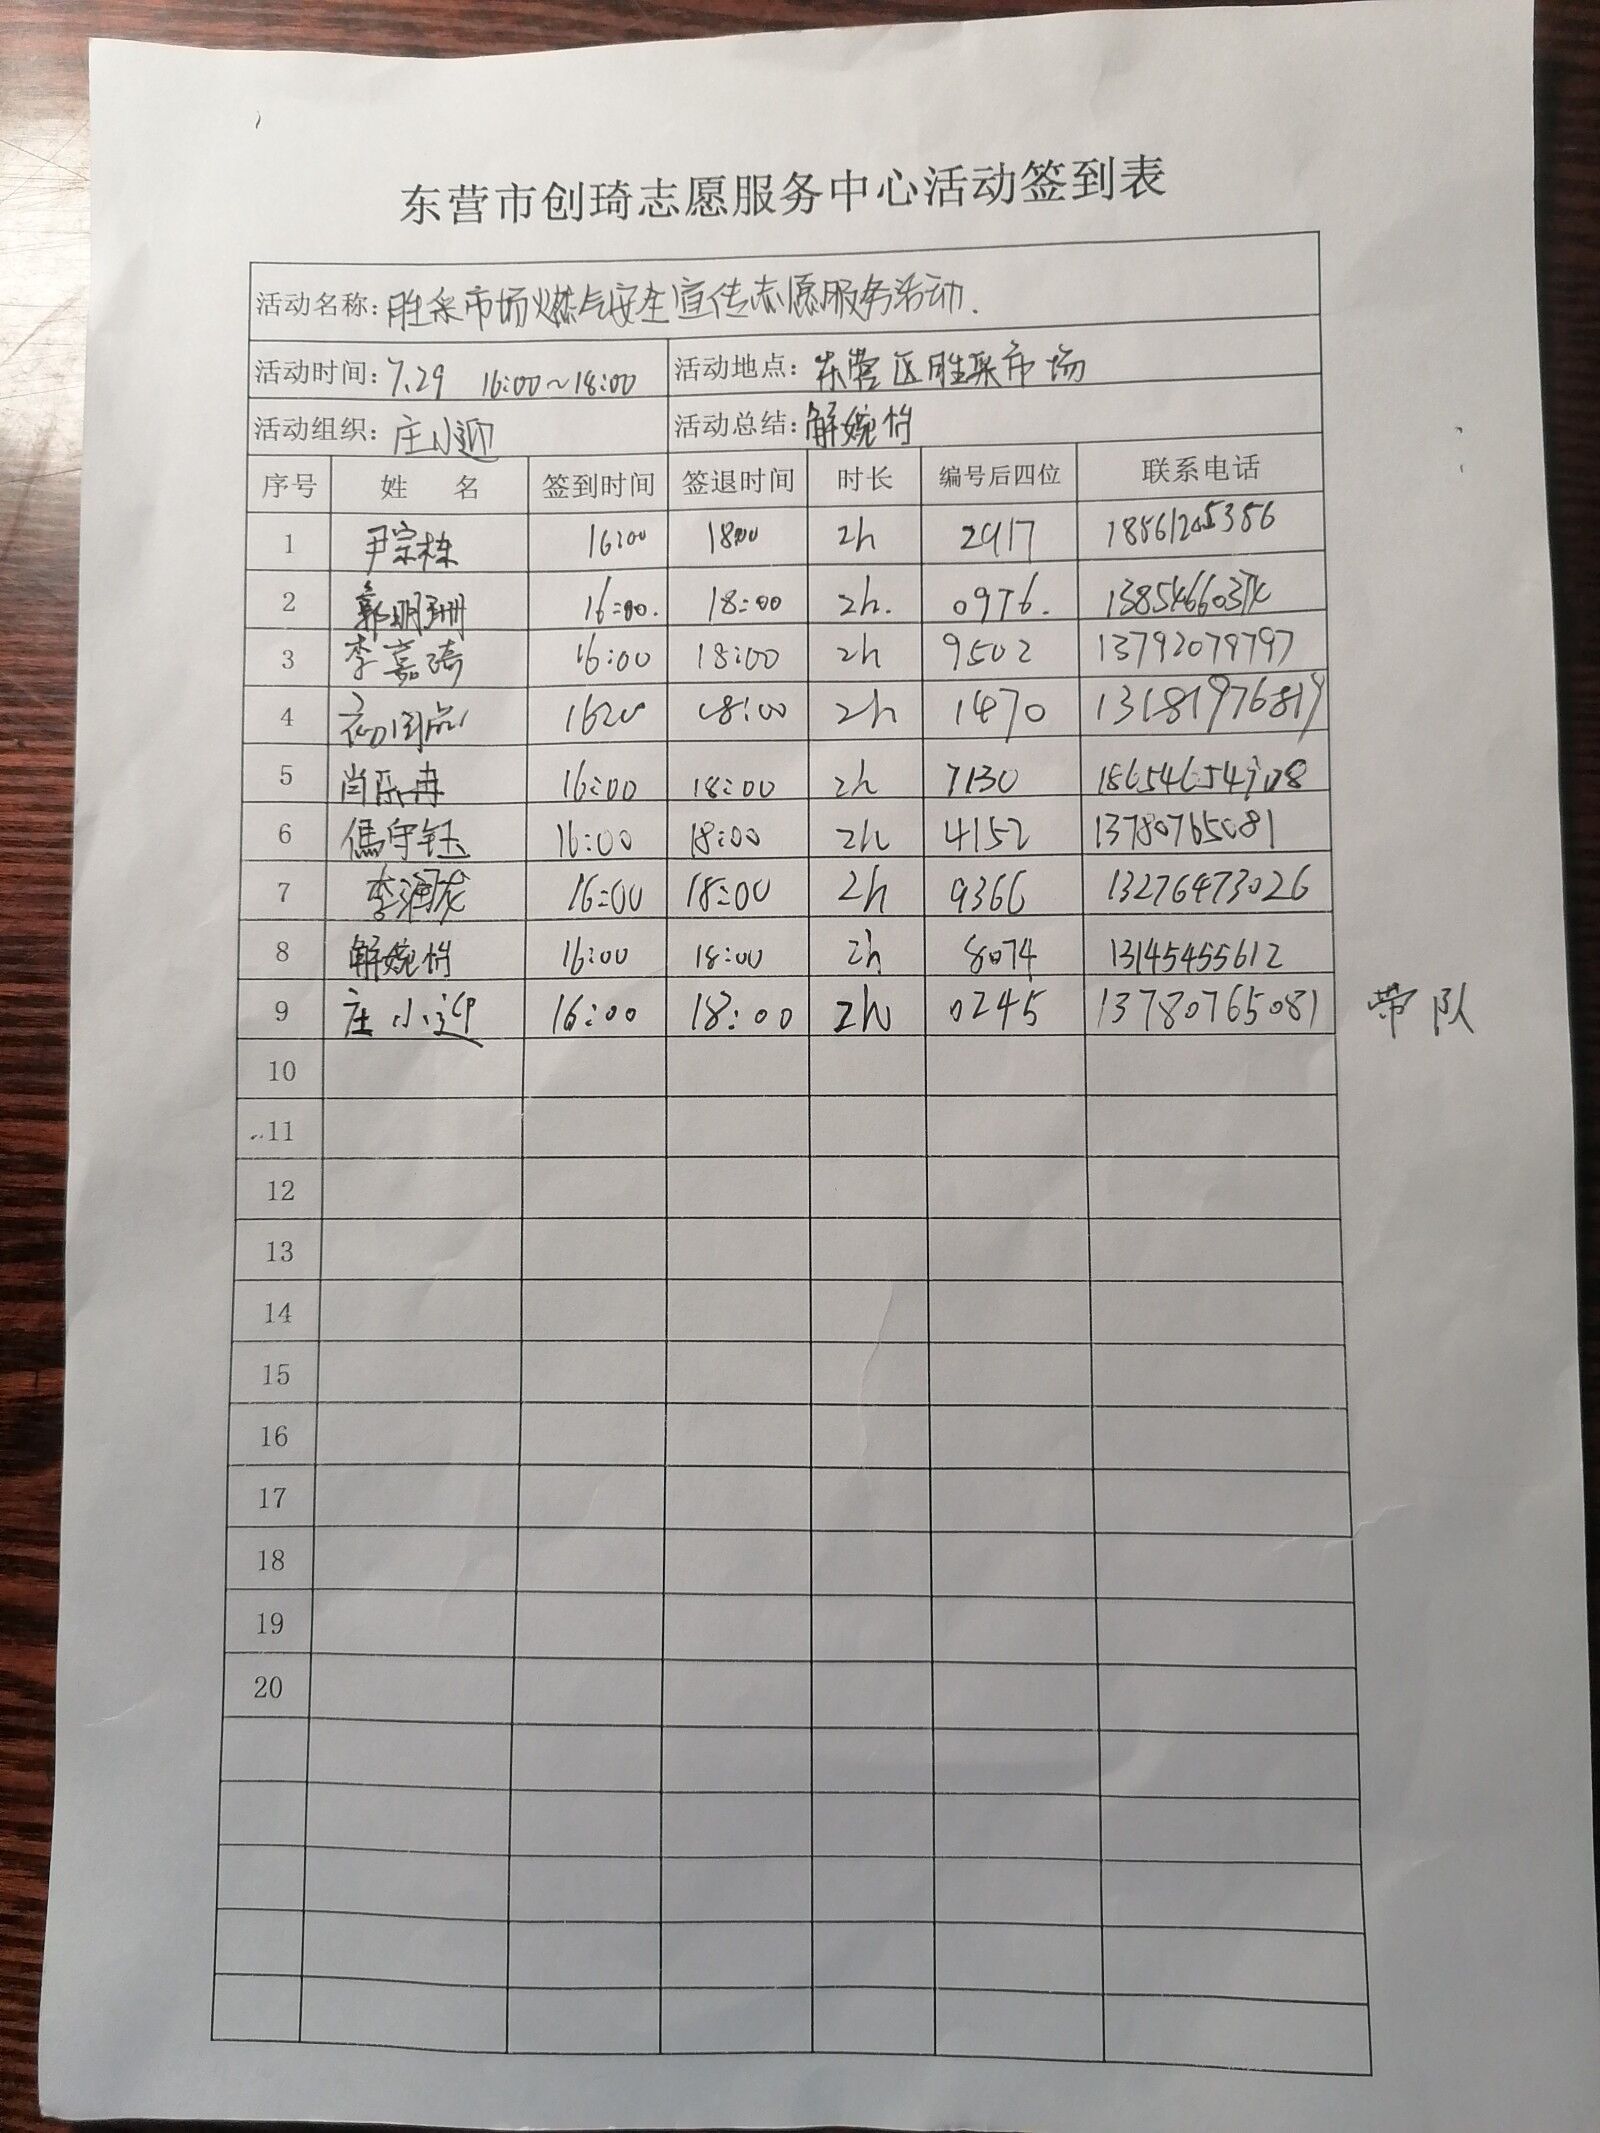 东营市创琦志愿服务中心活动签到表
活动名称: 胜采市场燃气安全宣传志愿服务活动.
活动时间: 7.29 16:00~18:00 活动地点: 东营区胜采市场
活动组织: 庄小迎 活动总结: 解婉怡
序号 姓 名 签到时间 签退时间 时长 编号后四位 联系电话
1 尹宗栋 16:00 18:00 2h 2917 18561205356
2 郭明珊 16:00. 18:00 2h. 0976.
3 李嘉琦 16:00 18:00 2h 9502 13792079797
4 18:00 2h 1470 13181976819
5 肖乐冉 16:00 18:00 2h 7130
6 傌守钰 16:00 18:00 2h 4152 13780765081
7 李润龙 16:00 18:00 2h 9366 13276473026
8 解婉怡 16:00 18:00 2h 8074 13145455612
9 庄小迎 16:00 18:00 2h 0245 13780765081 带队
10
11
12
13
14
15
16
17
18
19
20